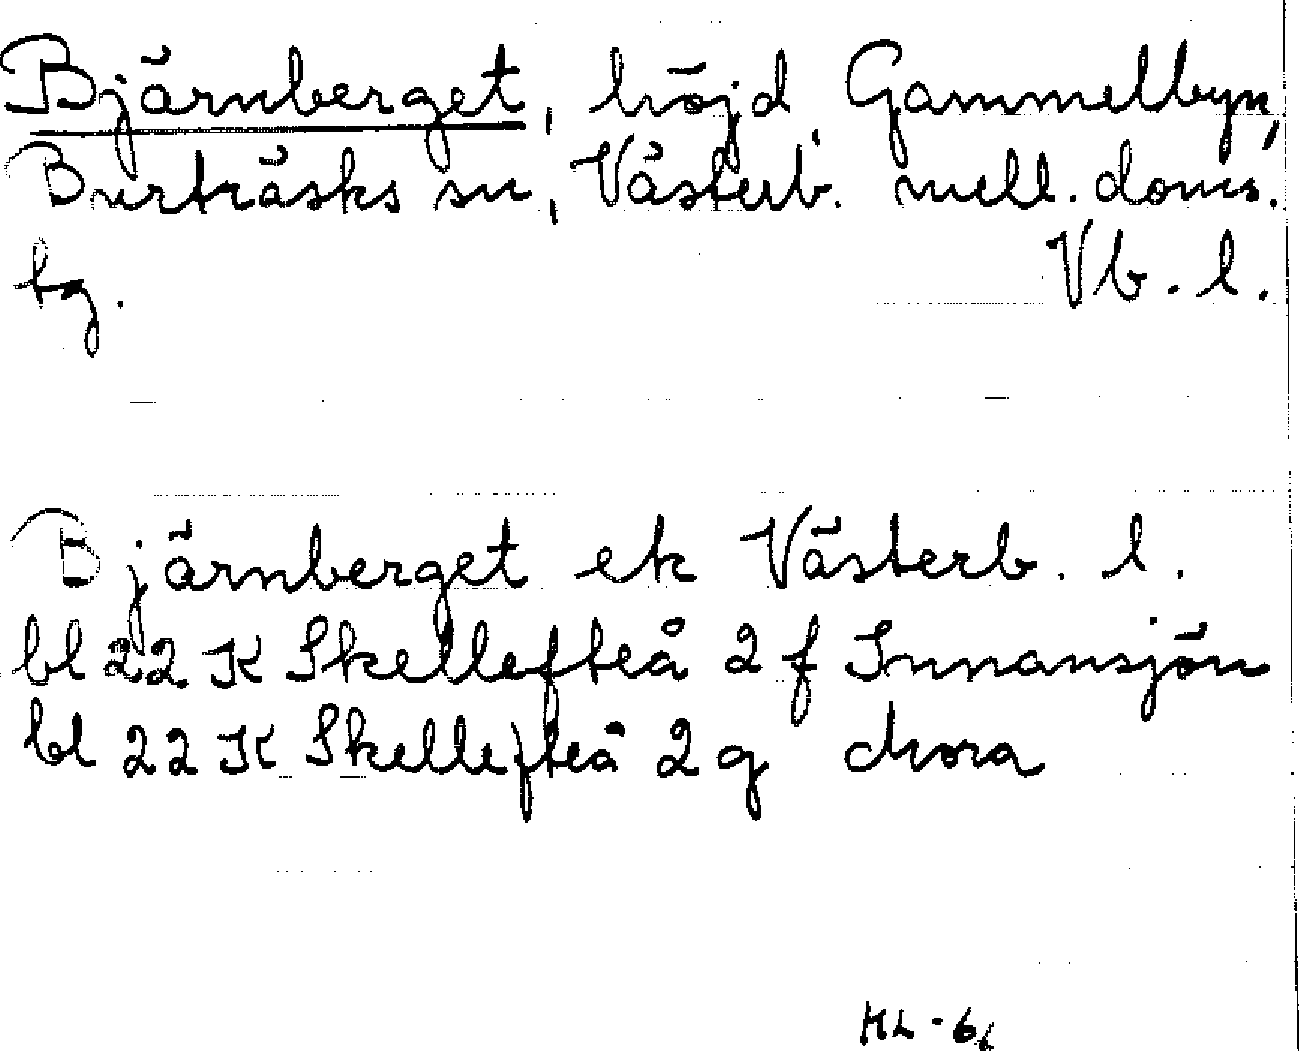 Bjärnberget, höjd, Gammelbyn,
Burträsks sn, Västerb. mell. doms.
tg. Vb. l.
Bjärnberget ek Västerb. l.
bl 22 K Skellefteå 2 f Innansjön
bl 22 K Skellefteå 2 g
KL-66